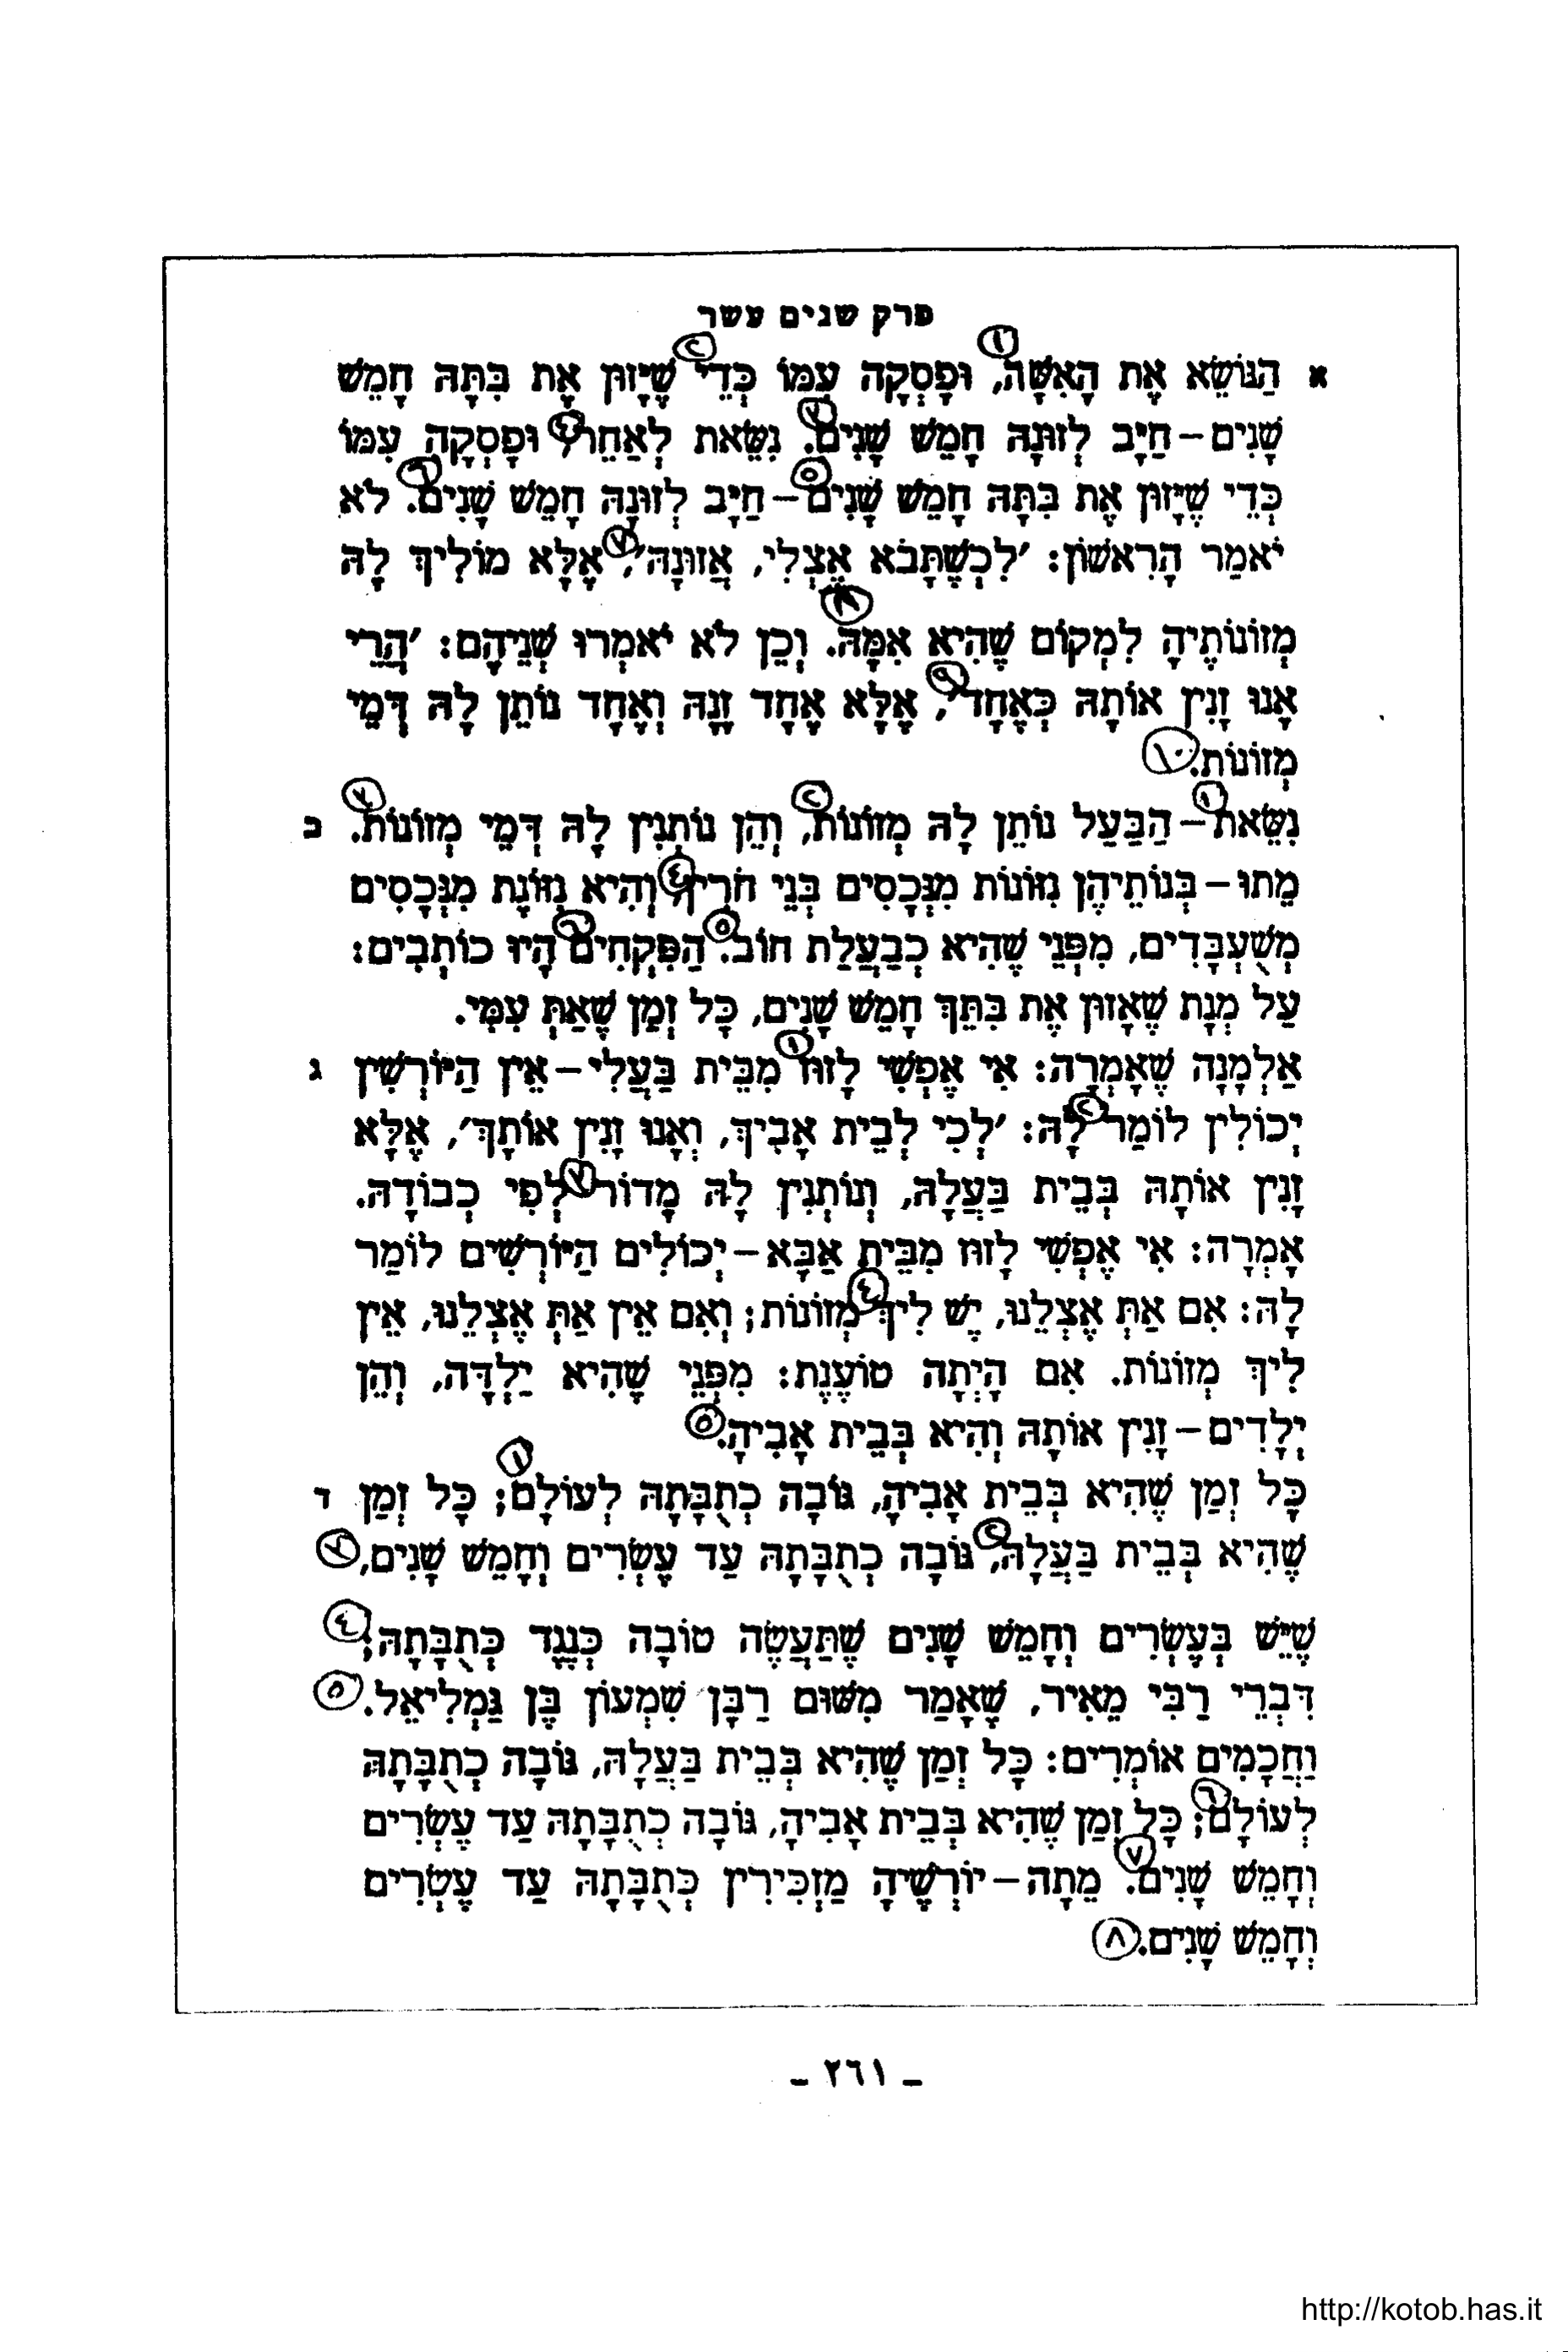 פרק שנים עשר
א הַנּוֹשֵׂא אֶת הָאִשָּׁה, (١) וּפָסְקָה עִמּוֹ כְּדֵי (٢) שֶׁיָּזוּן אֶת בִּתָּהּ חָמֵשׁ
שָׁנִים – חַיָּב לְזוּנָהּ חָמֵשׁ שָׁנִים. (٣) נִשֵּׂאת לְאַחֵר, (٤) וּפָסְקָה עִמּוֹ
כְּדֵי שֶׁיָּזוּן אֶת בִּתָּהּ חָמֵשׁ שָׁנִים (٥) – חַיָּב לְזוּנָהּ חָמֵשׁ שָׁנִים. (٦) לֹא
יֹאמַר הָרִאשׁוֹן: ׳לִכְשֶׁתָּבֹא אֶצְלִי, אֲזוּנָהּ׳, (٧) אֶלָּא מוֹלִיךְ לָהּ
מְזוֹנוֹתֶיהָ לִמְקוֹם שֶׁהִיא אִמָּהּ. (٨) וְכֵן לֹא יֹאמְרוּ שְׁנֵיהֶם: ׳הֲרֵי
אָנוּ זָנִין אוֹתָהּ כְּאֶחָד׳, (٩) אֶלָּא אֶחָד זָנָהּ וְאֶחָד נוֹתֵן לָהּ דְּמֵי
מְזוֹנוֹת. (١٠)
ב נִשֵּׂאת (١) – הַבַּעַל נוֹתֵן לָהּ מְזוֹנוֹת, (٢) וְהֵן נוֹתְנִין לָהּ דְּמֵי מְזוֹנוֹת. (٣)
מֵתוּ – בְּנוֹתֵיהֶן נִזּוֹנוֹת מִנְּכָסִים בְּנֵי חֹרִין, (٤) וְהִיא נִזּוֹנֶת מִנְּכָסִים
מְשֻׁעְבָּדִים, מִפְּנֵי שֶׁהִיא כְבַעֲלַת חוֹב. (٥) הַפִּקְחִים (٦) הָיוּ כוֹתְבִים:
עַל מְנָת שֶׁאָזוּן אֶת בִּתֵּךְ חָמֵשׁ שָׁנִים, כָּל זְמַן שֶׁאַתְּ עִמִּי.
ג אַלְמָנָה שֶׁאָמְרָה: אִי אֶפְשִׁי לָזוּז (١) מִבֵּית בַּעֲלִי – אֵין הַיּוֹרְשִׁין
יְכוֹלִין לוֹמַר לָהּ: (٢) ׳לְכִי לְבֵית אָבִיךְ, וְאָנוּ זָנִין אוֹתָךְ׳, אֶלָּא
זָנִין אוֹתָהּ בְּבֵית בַּעֲלָהּ, וְנוֹתְנִין לָהּ מָדוֹר (٣) לְפִי כְבוֹדָהּ.
אָמְרָה: אִי אֶפְשִׁי לָזוּז מִבֵּית אַבָּא – יְכוֹלִים הַיּוֹרְשִׁים לוֹמַר
לָהּ: אִם אַתְּ אֶצְלֵנוּ, יֶשׁ לִיךְ (٤) מְזוֹנוֹת; וְאִם אֵין אַתְּ אֶצְלֵנוּ, אֵין
לִיךְ מְזוֹנוֹת. אִם הָיְתָה טוֹעֶנֶת: מִפְּנֵי שֶׁהִיא יַלְדָּה, וְהֵן
יְלָדִים – זָנִין אוֹתָהּ וְהִיא בְּבֵית אָבִיהָ. (٥)
ד כָּל זְמַן שֶׁהִיא בְּבֵית אָבִיהָ, גּוֹבָה כְתֻבָּתָהּ לְעוֹלָם; (١) כָּל זְמַן
שֶׁהִיא בְּבֵית בַּעֲלָהּ, (٢) גּוֹבָה כְתֻבָּתָהּ עַד עֶשְׂרִים וְחָמֵשׁ שָׁנִים, (٣)
שֶׁיֵּשׁ בְּעֶשְׂרִים וְחָמֵשׁ שָׁנִים שֶׁתַּעֲשֶׂה טוֹבָה כְּנֶגֶד כְּתֻבָּתָהּ; (٤)
דִּבְרֵי רַבִּי מֵאִיר, שֶׁאָמַר מִשּׁוּם רַבָּן שִׁמְעוֹן בֶּן גַּמְלִיאֵל. (٥)
וַחֲכָמִים אוֹמְרִים: כָּל זְמַן שֶׁהִיא בְּבֵית בַּעֲלָהּ, גּוֹבָה כְתֻבָּתָהּ
לְעוֹלָם; (٦) כָּל זְמַן שֶׁהִיא בְּבֵית אָבִיהָ, גּוֹבָה כְתֻבָּתָהּ עַד עֶשְׂרִים
וְחָמֵשׁ שָׁנִים. (٧) מֵתָה – יוֹרְשֶׁיהָ מַזְכִּירִין כְּתֻבָּתָהּ עַד עֶשְׂרִים
וְחָמֵשׁ שָׁנִים. (٨)
- ٢٦١ -
http://kotob.has.it